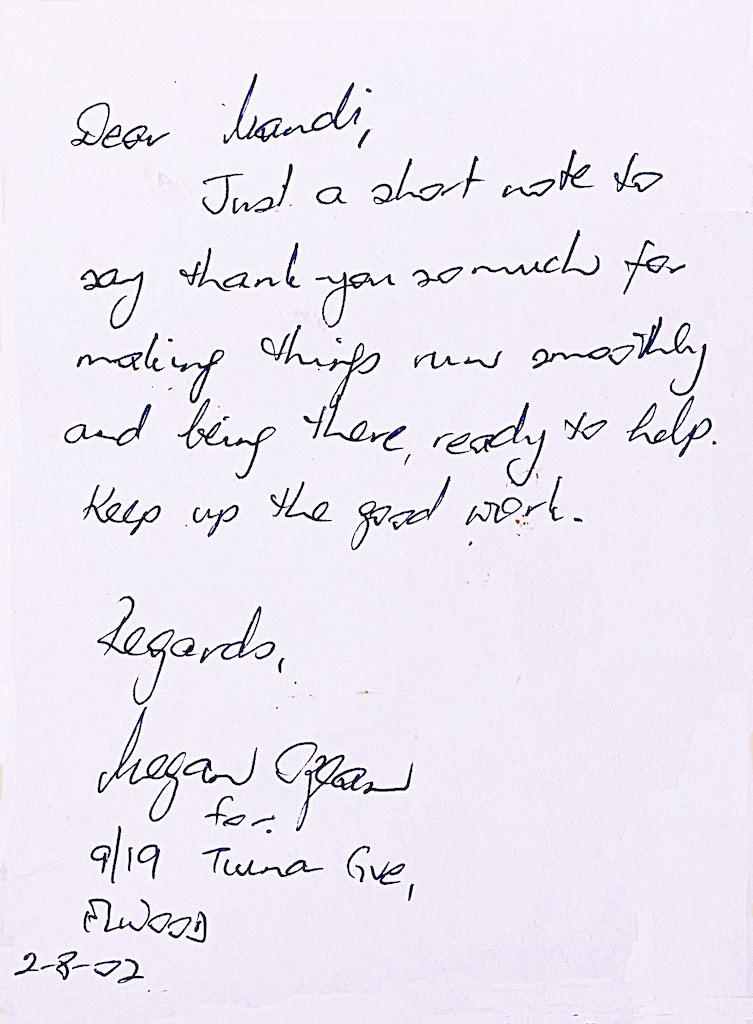 Dear Mandi,
Just a short note to
say thank-you so much for
making things run smoothly
and being there, ready to help.
Keep up the good work.
Regards,
Megan
for:
9/19 Gve,
ELWOOD
2-8-02